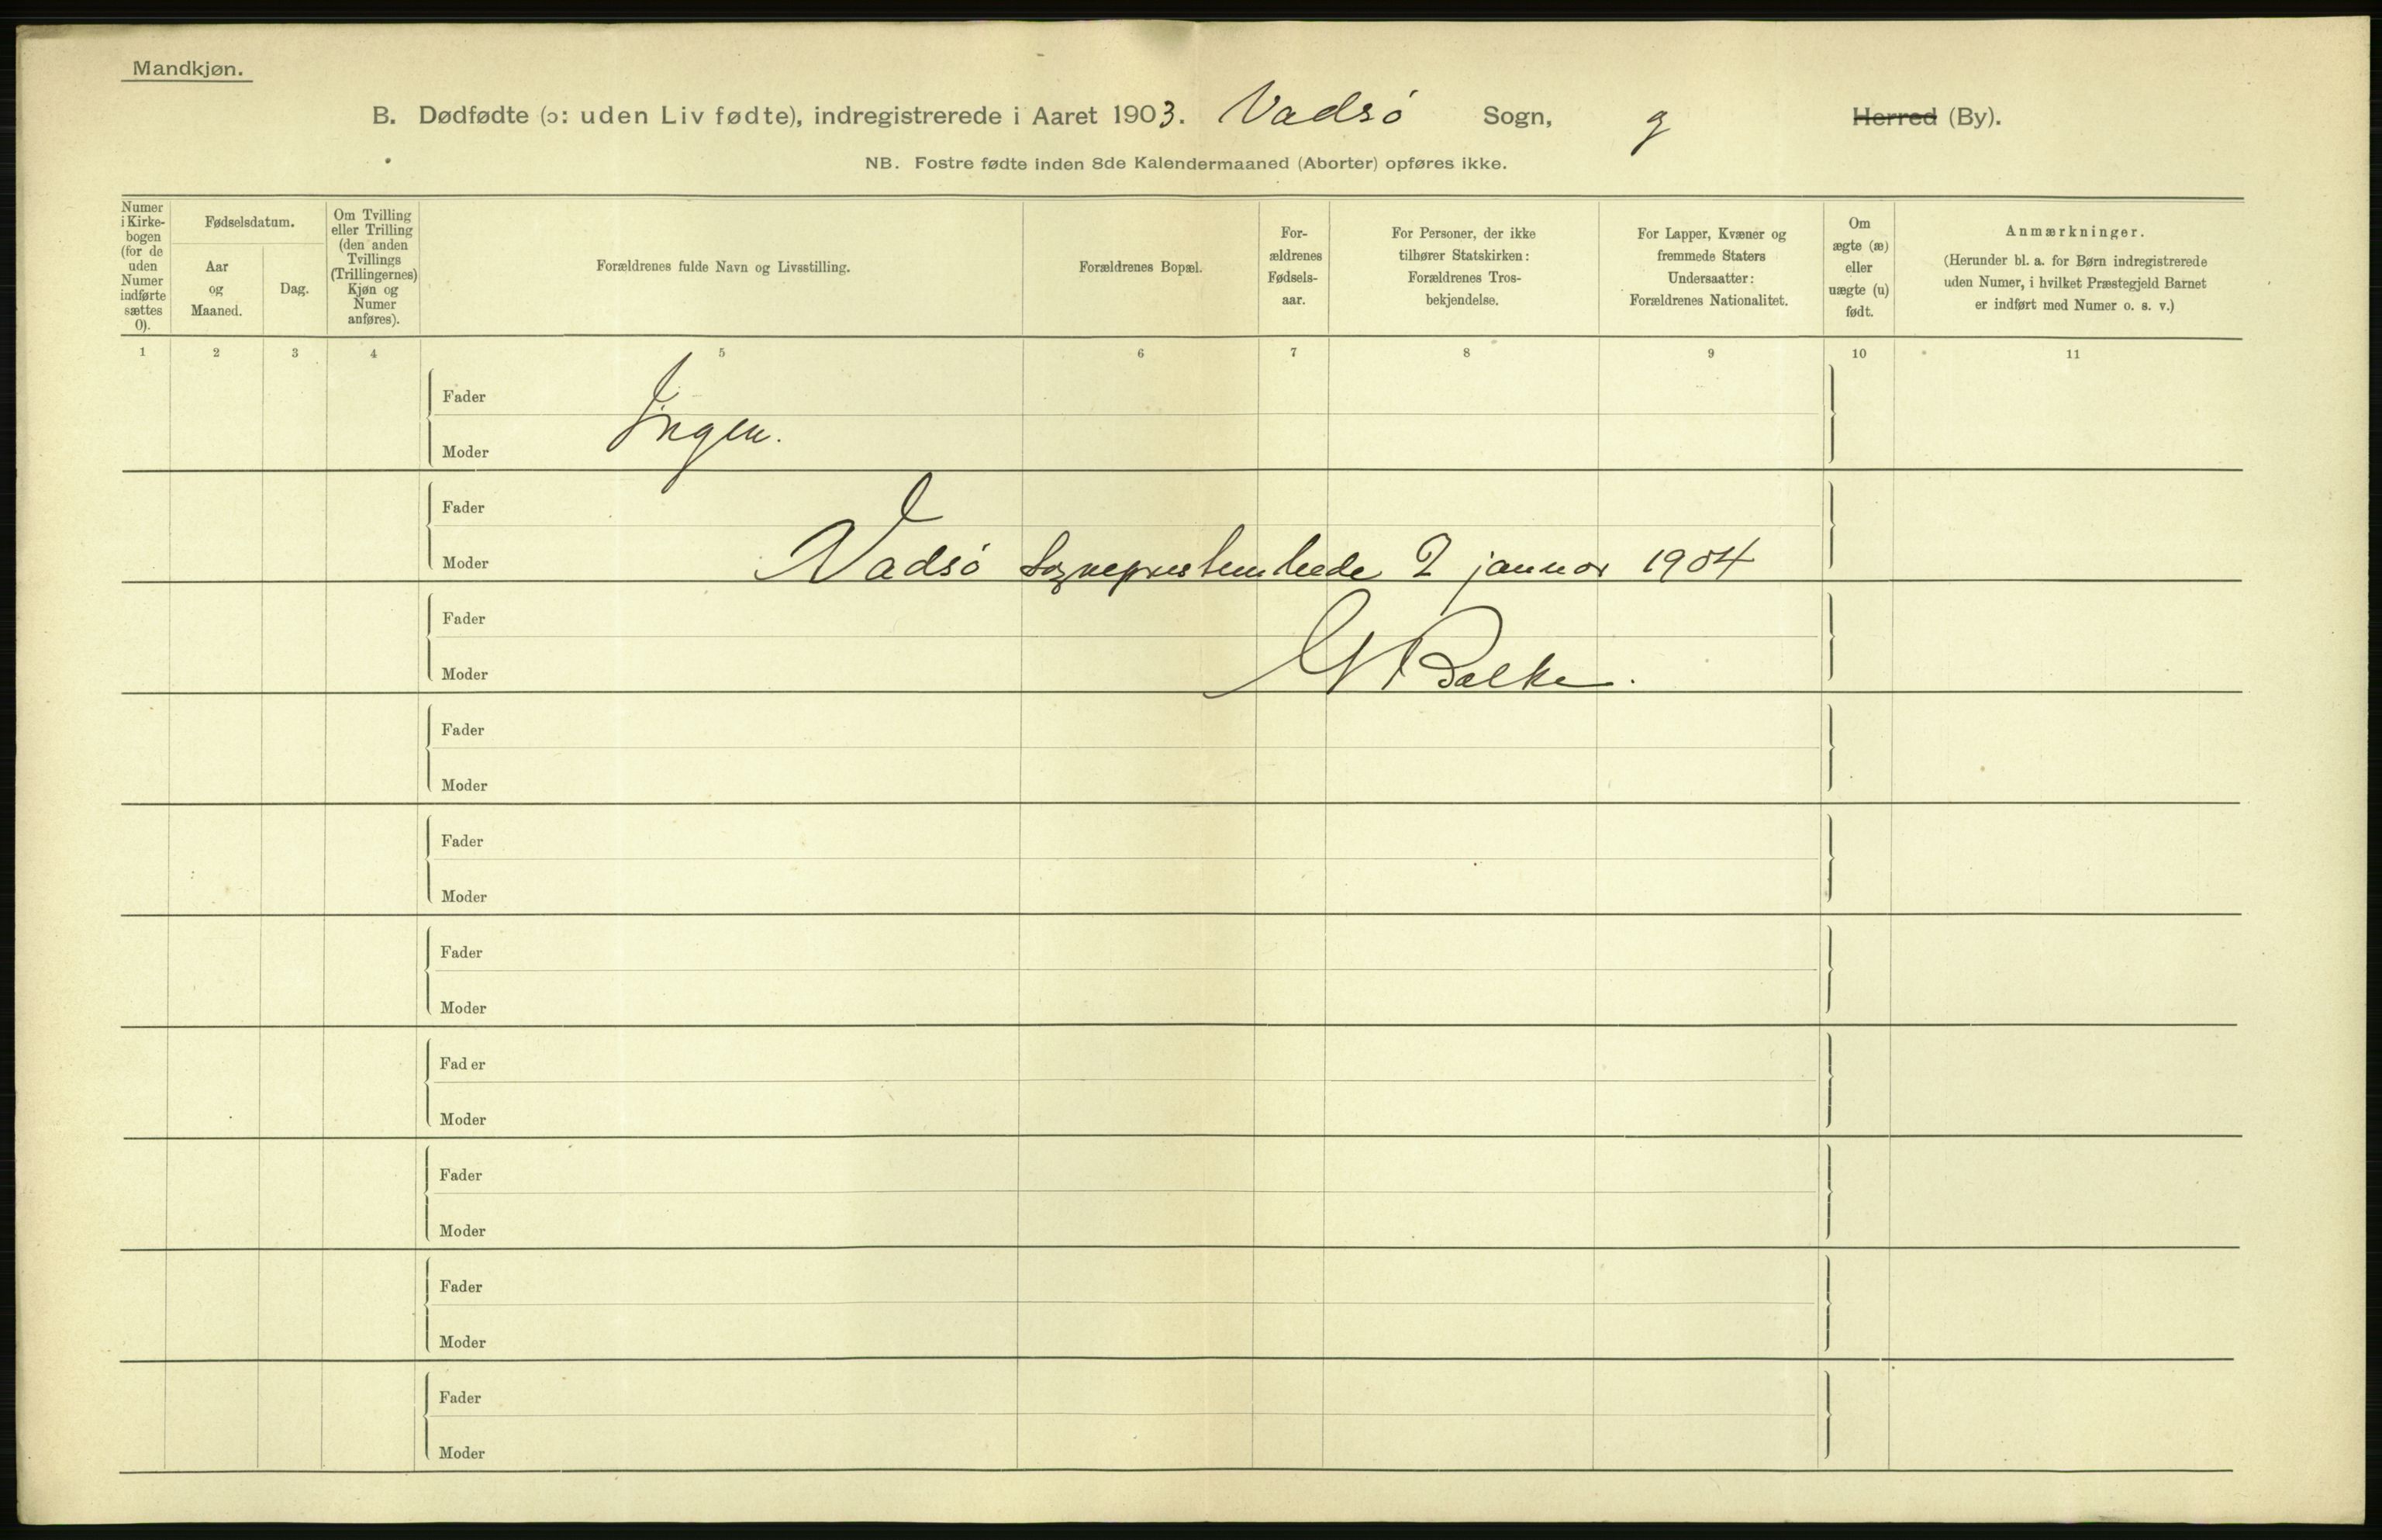 Mandkjøn.
B. Dødfødte (ɔ: uden Liv fødte), indregistrerede i Aaret 1903. Vadsö Sogn, g Herred (By).
NB. Fostre fødte inden 8de Kalendermaaned (Aborter) opføres ikke.
Numer
i Kirke-
bogen
(for de
uden
Numer
indførte
sættes
0).
Fødselsdatum.
Aar
og
Maaned.
Dag.
Om Tvilling
eller Trilling
(den anden
Tvillings
(Trillingernes)
Kjøn og
Numer
anføres).
Forældrenes fulde Navn og Livsstilling.
Forældrenes Bopæl.
For-
ældrenes
Fødsels-
aar.
For Personer, der ikke
tilhører Statskirken:
Forældrenes Tros-
bekjendelse.
For Lapper, Kvæner og
fremmede Staters
Undersaatter:
Forældrenes Nationalitet.
Om
ægte (æ)
eller
uægte (u)
født.
Anmærkninger.
(Herunder bl. a. for Børn indregistrerede
uden Numer, i hvilket Præstegjeld Barnet
er indført med Numer o. s. v.)
1 2 3 4 5 6 7 8 9 10 11
Fader
Ingen.
Moder
Fader
Moder Vadsö Sogneprestembede 2 januar 1904
Fader
G Balke.
Moder
Fader
Moder
Fader
Moder
Fader
Moder
Fader
Moder
Fader
Moder
Fader
Moder
Fader
Moder